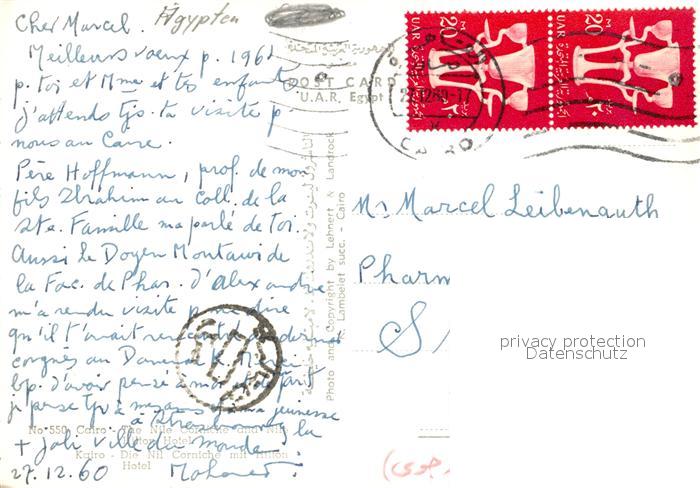 Cher Marcel. Ägypten
Meilleurs vœux p. 1961
p. toi et Mme et tes enfants
j'attends tjs. ta visite p.
nous au Caire.
Père Hoffmann, prof. de mon
fils Ibrahim au coll. de la
Ste. Famille m'a parlé de toi.
Aussi le Doyen de
la Fac. de Phar. d'Alexandrie
m'a rendu visite p. me dire
qu'il t'avait rencontré
congrès au
bp. d'avoir pensé à moi et de fait
je pense tjs à ma jeunesse
à Strasbourg, la
+ joli ville du monde
27.12.60 Mohamed
الجمهورية العربية المتحدة
POST CARD
U.A.R. Egypt
UAR 20 M
UAR 20 M
CAIRO
Photo and Copyright by Lehnert & Landrock
K. Lambelet succ. - Cairo
No 550 Cairo - The Nile Corniche and Nile
Hilton Hotel
Kairo - Die Nil Corniche mit Hilton
Hotel
Mr Marcel Leibenguth
Pharm
S
privacy protection
Datenschutz
(جوى)